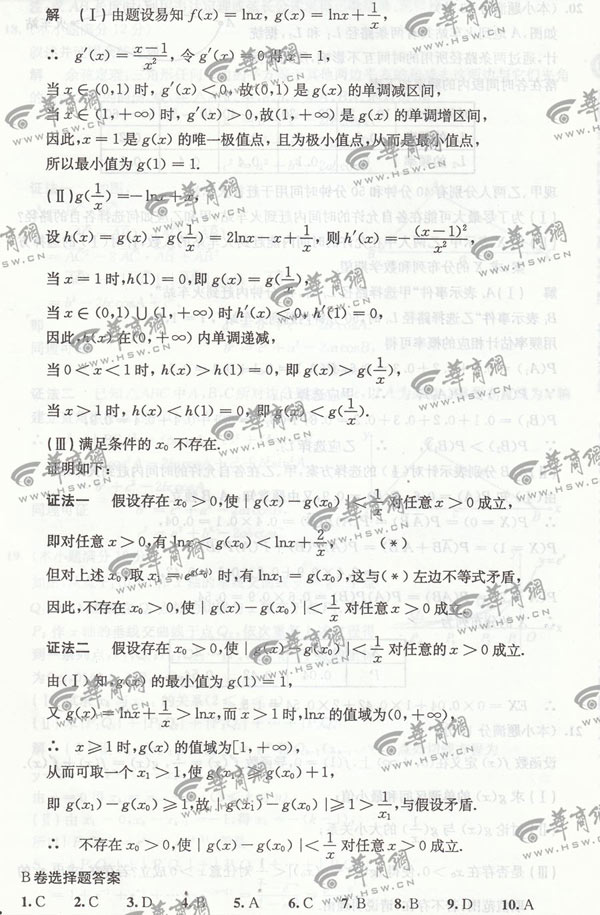 解 (Ⅰ)由题设易知 f(x)=lnx, g(x)=lnx+1/x,
∴ g′(x)=(x−1)/x², 令 g′(x)=0 得 x=1,
当 x∈(0,1) 时, g′(x)<0, 故(0,1) 是 g(x) 的单调减区间,
当 x∈(1,+∞) 时, g′(x)>0, 故(1,+∞) 是 g(x) 的单调增区间,
因此, x=1 是 g(x) 的唯一极值点, 且为极小值点, 从而是最小值点,
所以最小值为 g(1)=1.
(Ⅱ)g(1/x)=−lnx+x,
设 h(x)=g(x)-g(1/x)=2lnx-x+1/x, 则 h′(x)=−(x−1)²/x²,
当 x=1 时, h(1)=0, 即 g(x)=g(1/x),
当 x∈(0,1)∪(1,+∞) 时 h′(x)<0, h′(1)=0,
因此, h(x) 在(0,+∞) 内单调递减,
当 0<x<1 时, h(x)>h(1)=0, 即 g(x)>g(1/x),
当 x>1 时, h(x)<h(1)=0, 即 g(x)<g(1/x).
(Ⅲ) 满足条件的 x₀ 不存在.
证明如下:
证法一 假设存在 x₀>0, 使 | g(x)−g(x₀) |<1/x 对任意 x>0 成立,
即对任意 x>0, 有 lnx<g(x₀)<lnx+2/x, (*)
但对上述 x₀, 取 x₁=e^{g(x₀)} 时, 有 lnx₁=g(x₀), 这与(*) 左边不等式矛盾,
因此, 不存在 x₀>0, 使 | g(x)−g(x₀) |<1/x 对任意 x>0 成立.
证法二 假设存在 x₀>0, 使 | g(x)−g(x₀) |<1/x 对任意的 x>0 成立.
由(Ⅰ)知, g(x) 的最小值为 g(1)=1,
又 g(x)=lnx+1/x>lnx, 而 x>1 时, lnx 的值域为(0,+∞),
∴ x≥1 时, g(x) 的值域为[1,+∞),
从而可取一个 x₁>1, 使 g(x₁)≥g(x₀)+1,
即 g(x₁)−g(x₀)≥1, 故 | g(x₁)−g(x₀) |≥1>1/x₁, 与假设矛盾.
∴ 不存在 x₀>0, 使 | g(x)−g(x₀) |<1/x 对任意 x>0 成立.
B 卷选择题答案
1. C 2. C 3. D 4. B 5. A 6. C 7. B 8. B 9. D 10. A
華商網
WWW.HSW.CN